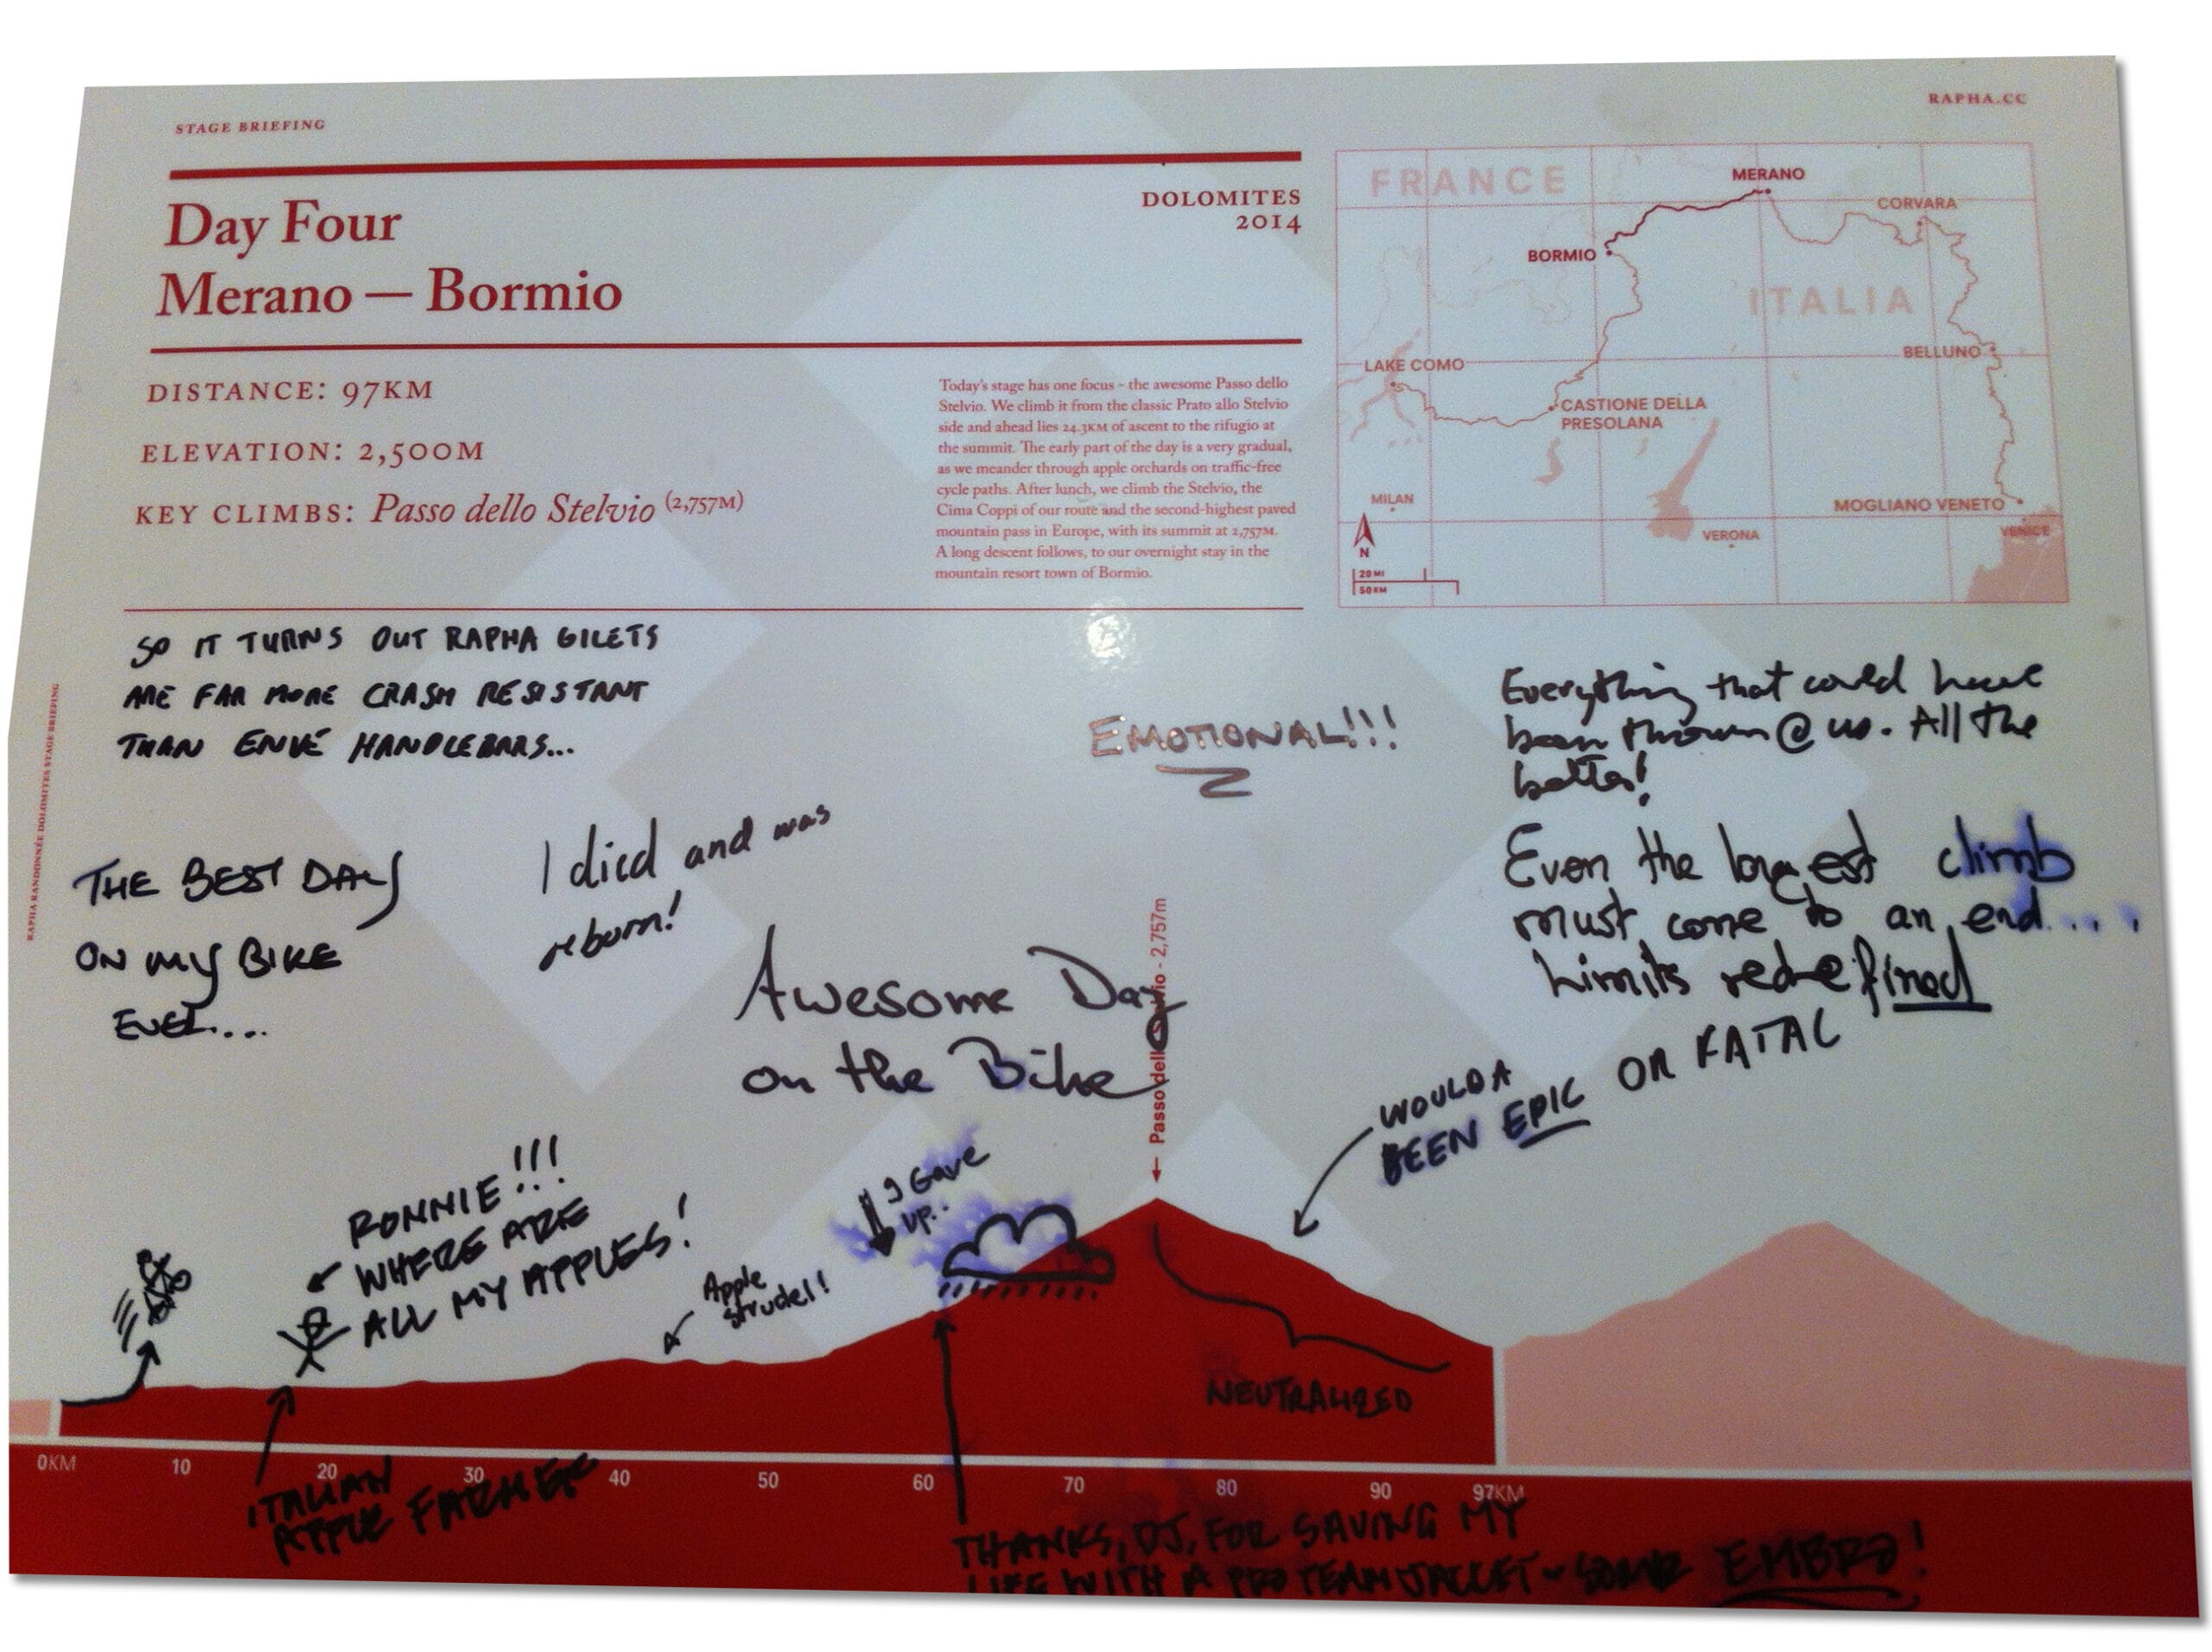 STAGE BRIEFING
RAPHA.CC
Day Four
Merano — Bormio
DOLOMITES
2014
DISTANCE: 97KM
ELEVATION: 2,500M
KEY CLIMBS: Passo dello Stelvio (2,757M)
Today's stage has one focus – the awesome Passo dello
Stelvio. We climb it from the classic Prato allo Stelvio
side and ahead lies 24.3KM of ascent to the rifugio at
the summit. The early part of the day is a very gradual,
as we meander through apple orchards on traffic-free
cycle paths. After lunch, we climb the Stelvio, the
Cima Coppi of our route and the second-highest paved
mountain pass in Europe, with its summit at 2,757M.
A long descent follows, to our overnight stay in the
mountain resort town of Bormio.
FRANCE
MERANO
CORVARA
BORMIO
ITALIA
LAKE COMO
BELLUNO
CASTIONE DELLA
PRESOLANA
MILAN
MOGLIANO VENETO
VERONA
VENICE
N
20 MI
50 KM
RAPHA RANDONNÉE DOLOMITES STAGE BRIEFING
SO IT TURNS OUT RAPHA GILETS
ARE FAR MORE CRASH RESISTANT
THAN ENVE HANDLEBARS...
EMOTIONAL!!!
Everything that could have
been thrown @ us. All the
better!
THE BEST DAY
ON MY BIKE
EVER....
I died and was
reborn!
Even the longest climb
must come to an end....
Limits redefined
Awesome Day
on the Bike
Passo dello Stelvio - 2,757m
WOULDA
BEEN EPIC OR FATAL
I Gave
up..
RONNIE!!!
WHERE ARE
ALL MY APPLES!
Apple
strudel!
NEUTRALIZED
0KM 10 20 30 40 50 60 70 80 90 97KM
ITALIAN
APPLE FARMER
THANKS, DJ, FOR SAVING MY
LIFE WITH A PRO TEAM JACKET - SOME EMBRO!